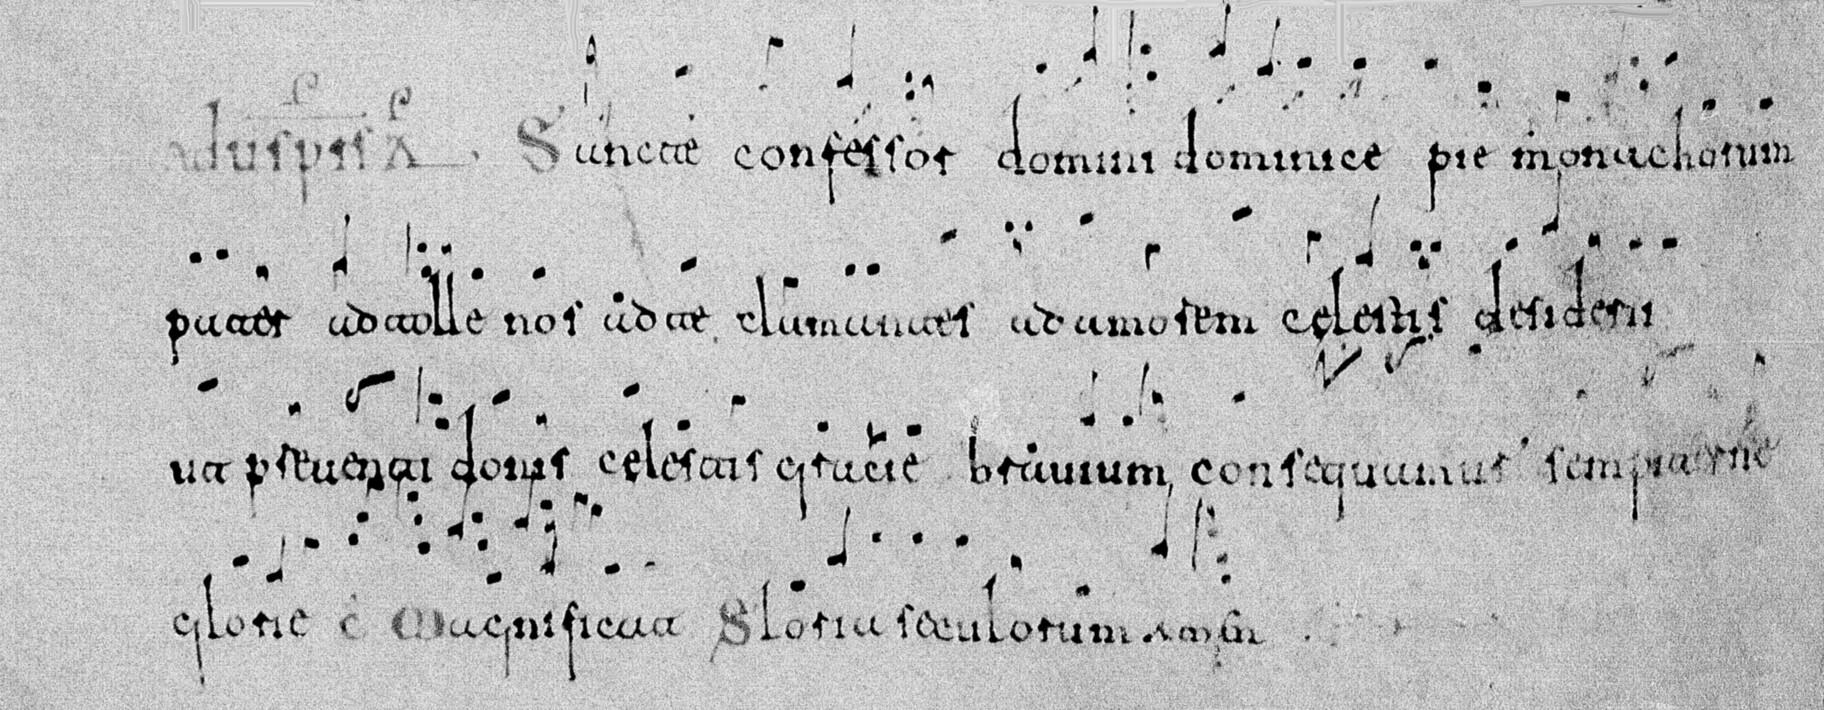 Sancte confessor domini dominice pie monachorum
pater adtolle nos ad te clamantes ad amorem celestis desiderii
ut preuenti donis celestis gratie brauium consequamur sempiterne
glorie Magnificat Gloria seculorum amen